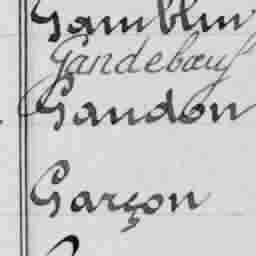 Gamblin
Gandebœuf
Gandon
Garçon